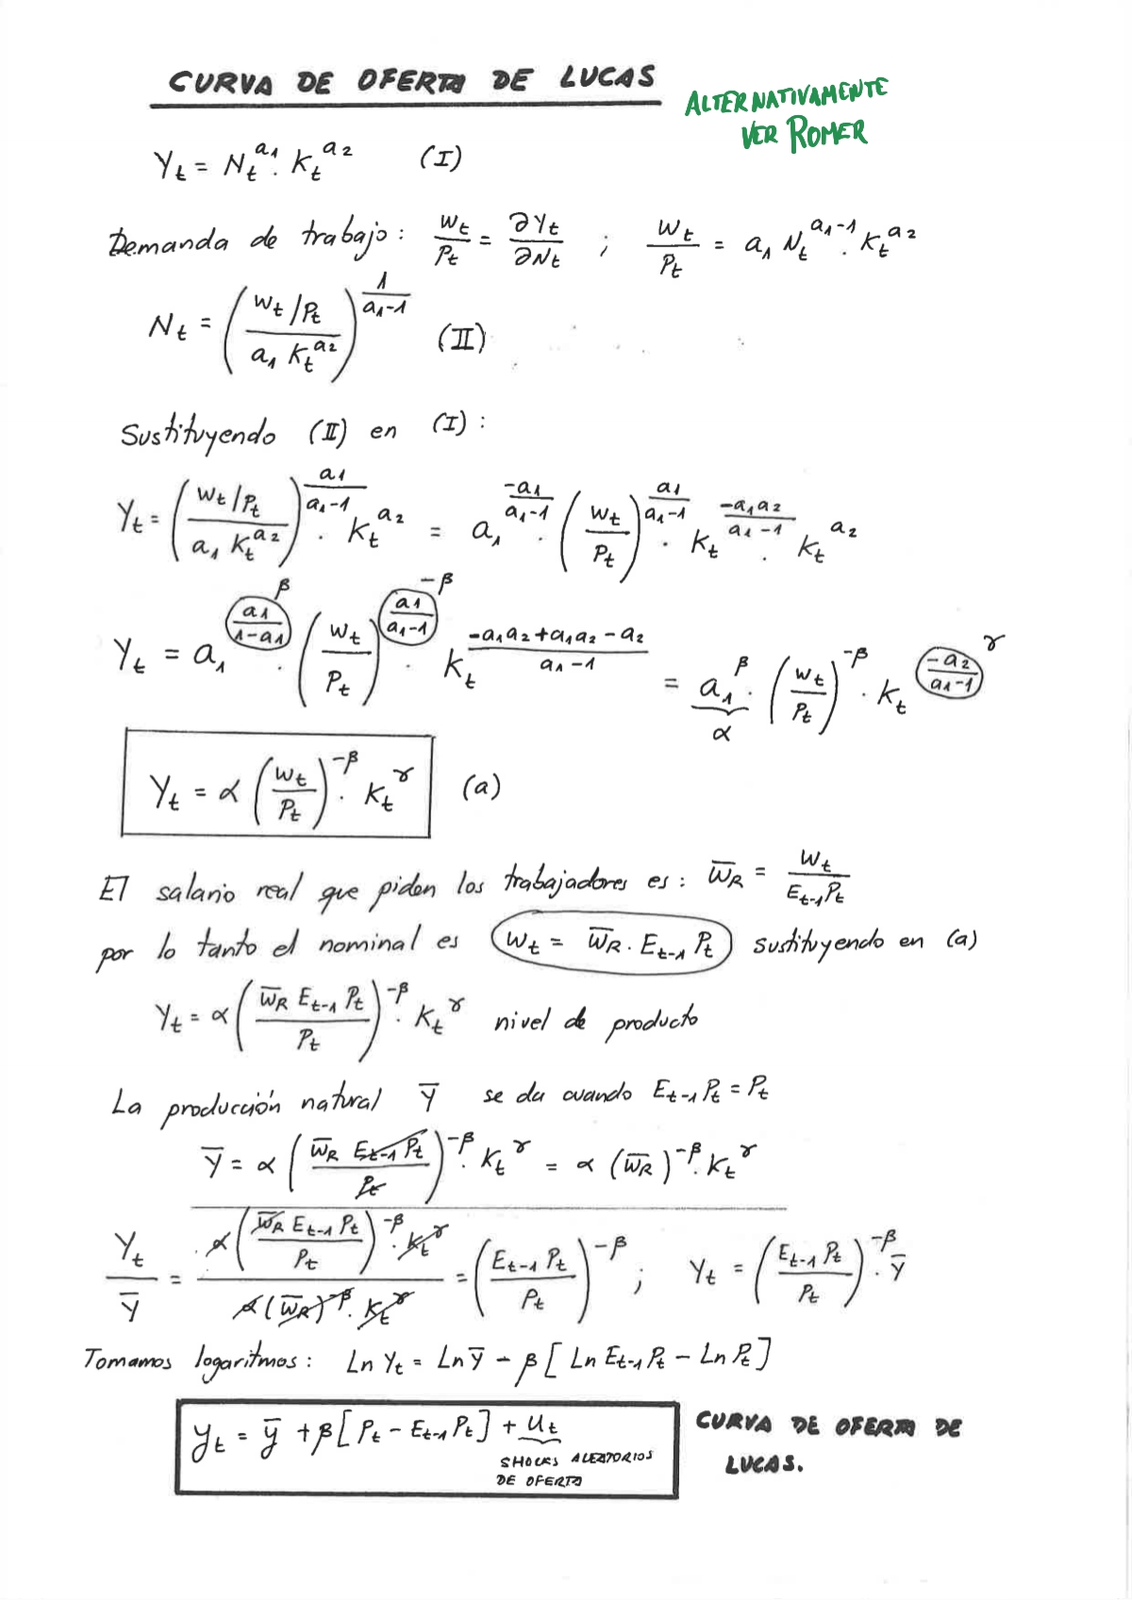 CURVA DE OFERTA DE LUCAS
ALTERNATIVAMENTE
VER ROMER
Y_t = N_t^{a_1} · K_t^{a_2} (I)
Demanda de trabajo: \frac{W_t}{P_t} = \frac{∂Y_t}{∂N_t} ; \frac{W_t}{P_t} = a_1 N_t^{a_1-1} · K_t^{a_2}
N_t = \left(\frac{W_t/P_t}{a_1 K_t^{a_2}}\right)^{\frac{1}{a_1-1}} (II)
Sustituyendo (II) en (I):
Y_t = \left(\frac{W_t/P_t}{a_1 K_t^{a_2}}\right)^{\frac{a_1}{a_1-1}} · K_t^{a_2} = a_1^{\frac{-a_1}{a_1-1}} · \left(\frac{W_t}{P_t}\right)^{\frac{a_1}{a_1-1}} · K_t^{\frac{-a_1a_2}{a_1-1}} · K_t^{a_2}
Y_t = a_1^{\frac{a_1}{1-a_1}} β · \left(\frac{W_t}{P_t}\right)^{\frac{a_1}{a_1-1}} -β · K_t^{\frac{-a_1a_2+a_1a_2-a_2}{a_1-1}} = a_1^β · \left(\frac{W_t}{P_t}\right)^{-β} · K_t^{\frac{-a_2}{a_1-1}} γ
α
Y_t = α \left(\frac{W_t}{P_t}\right)^{-β} · K_t^γ (a)
El salario real que piden los trabajadores es: \overline{W}_R = \frac{W_t}{E_{t-1}P_t}
por lo tanto el nominal es W_t = \overline{W}_R · E_{t-1} P_t sustituyendo en (a)
Y_t = α \left(\frac{\overline{W}_R E_{t-1} P_t}{P_t}\right)^{-β} · K_t^γ nivel de producto
La producción natural \overline{Y} se da cuando E_{t-1}P_t = P_t
\overline{Y} = α \left(\frac{\overline{W}_R E_{t-1} P_t}{P_t}\right)^{-β} · K_t^γ = α (\overline{W}_R)^{-β} · K_t^γ
\frac{Y_t}{\overline{Y}} = \frac{α \left(\frac{\overline{W}_R E_{t-1} P_t}{P_t}\right)^{-β} · K_t^γ}{α (\overline{W}_R)^{-β} · K_t^γ} = \left(\frac{E_{t-1} P_t}{P_t}\right)^{-β} ; Y_t = \left(\frac{E_{t-1} P_t}{P_t}\right)^{-β} · \overline{Y}
Tomamos logaritmos: Ln Y_t = Ln \overline{Y} - β [Ln E_{t-1}P_t - Ln P_t]
y_t = \overline{y} + β [P_t - E_{t-1}P_t] + u_t
SHOCKS ALEATORIOS
DE OFERTA
CURVA DE OFERTA DE
LUCAS.